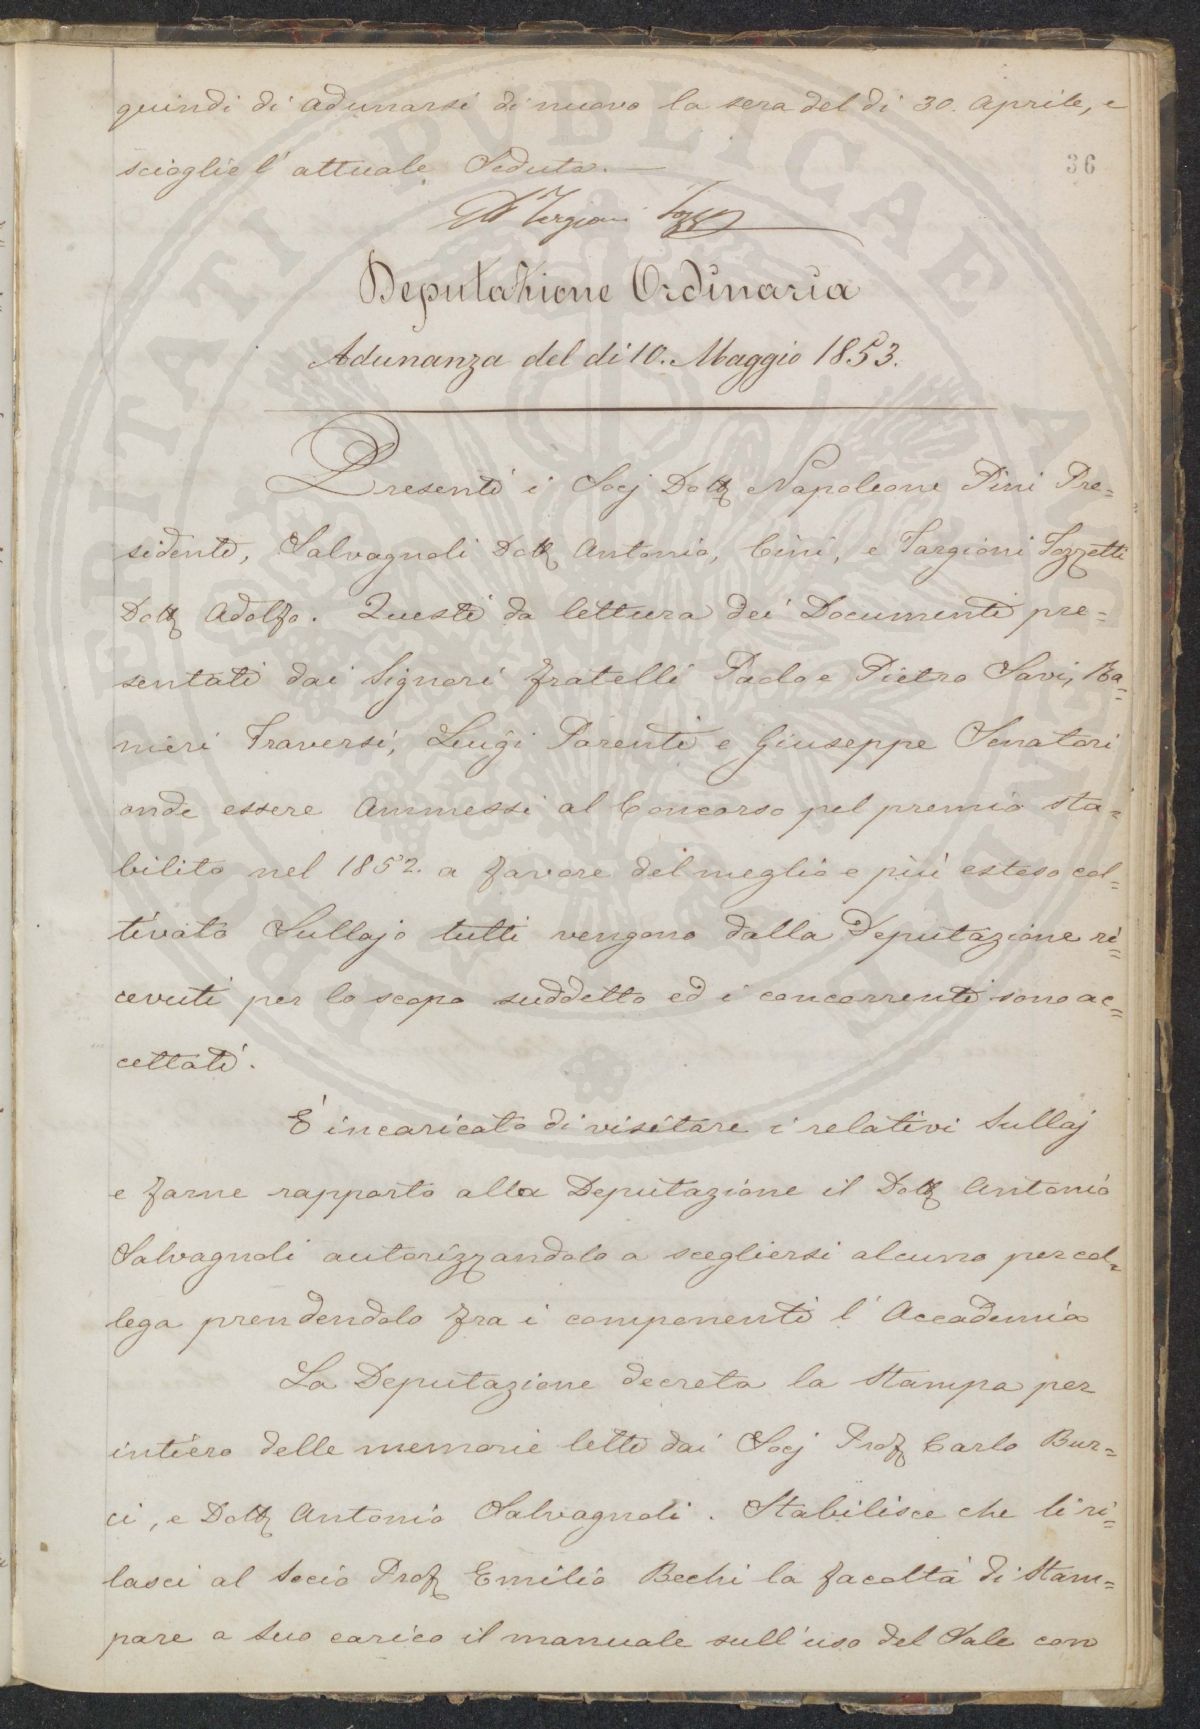 quindi di adunarsi di nuovo la sera del dì 30. Aprile, e
scioglie l'attuale Seduta. —
36
Ad Targioni Tozzetti
Deputazione Ordinaria
Adunanza del dì 10. Maggio 1853.
Presenti i Socj Dott. Napoleone Pini Pre=
sidente, Salvagnoli Dott. Antonio, Cini, e Targioni Tozzetti
Dott. Adolfo. Questi da lettura dei Documenti pre=
sentati dai Signori fratelli Paolo e Pietro Savi, Ra=
nieri Traversi, Luigi Parenti e Giuseppe Senatori
onde essere ammessi al Concorso pel premio sta=
bilito nel 1852. a favore del meglio e più esteso col=
tivato Sullajo tutti vengono dalla Deputazione ri=
cevuti per lo scopo suddetto ed i concorrenti sono ac=
cettati.
È incaricato di visitare i relativi Sullaj
e farne rapporto alla Deputazione il Dott. Antonio
Salvagnoli autorizzandolo a scegliersi alcuno per col=
lega prendendolo fra i componenti l'Accademia
La Deputazione decreta la Stampa per
intiero delle memorie lette dai Socj Prof. Carlo Bur=
ci, e Dott. Antonio Salvagnoli. Stabilisce che li ri=
lasci al Socio Prof. Emilio Bechi la facoltà di Stam=
pare a suo carico il manuale sull'uso del Sale con
PROSPERITATI PUBLICAE AUGENDAE